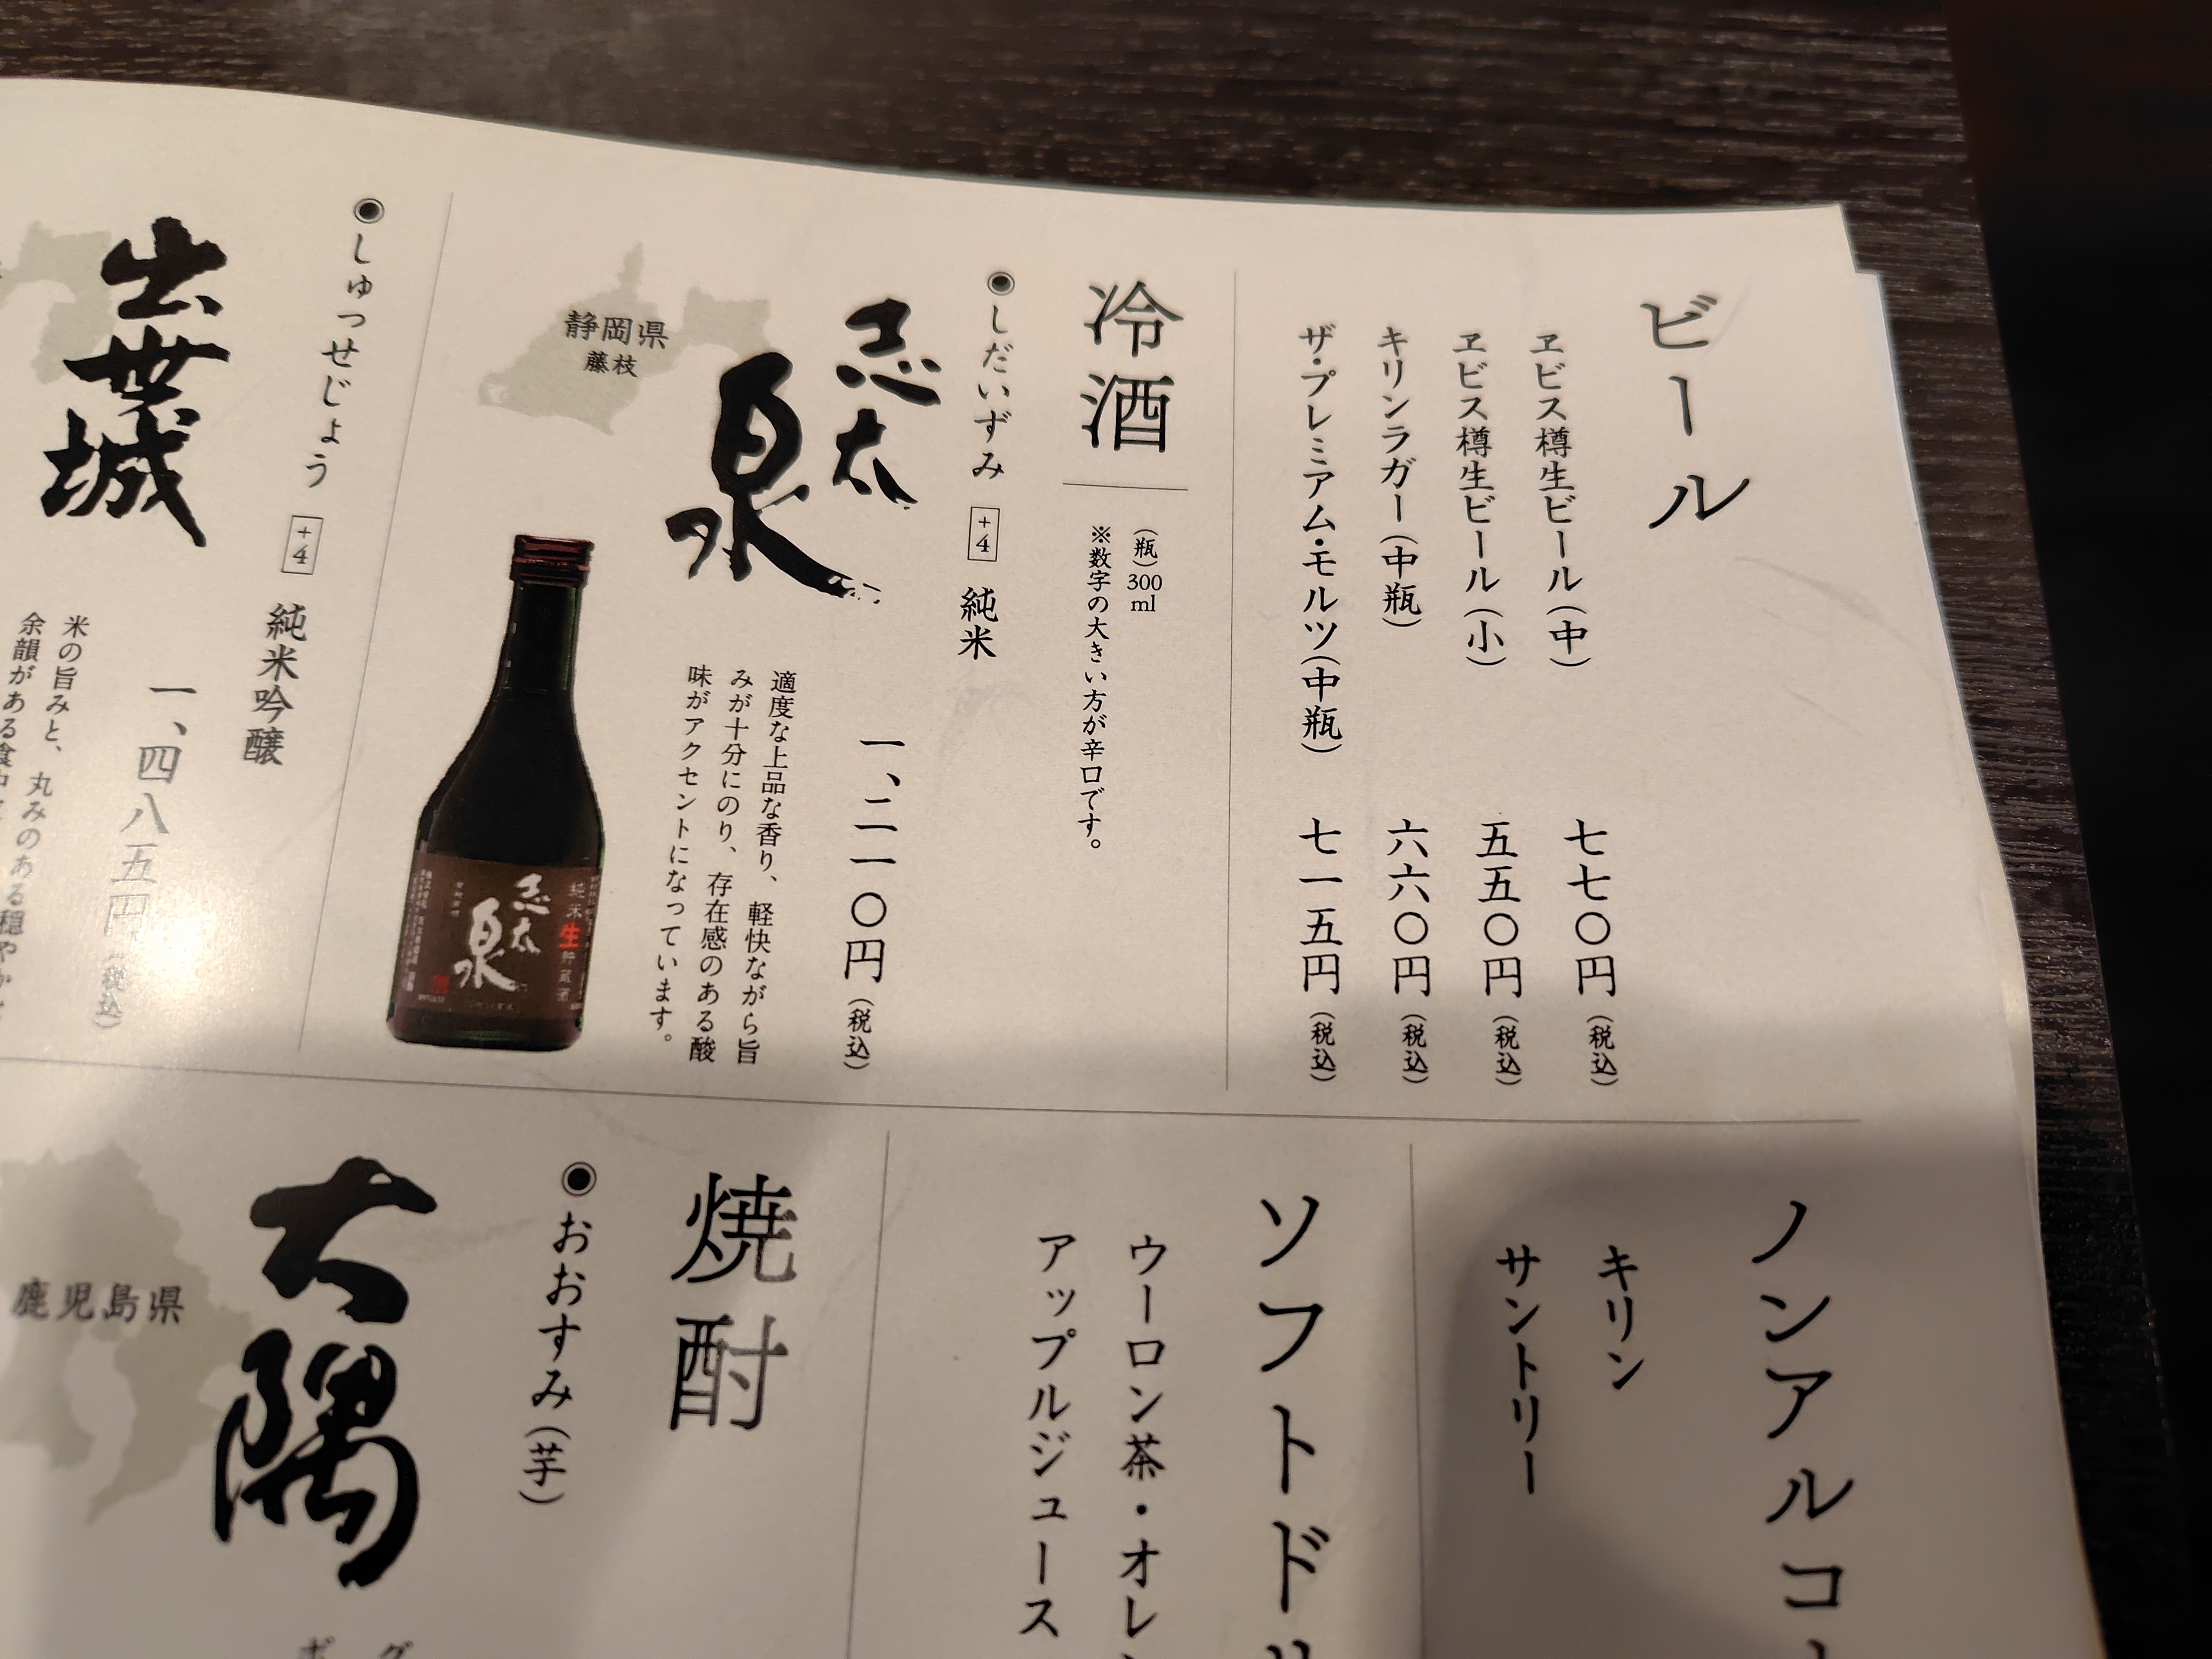 ビール
ヱビス樽生ビール(中) 七七〇円(税込)
ヱビス樽生ビール(小) 五五〇円(税込)
キリンラガー(中瓶) 六六〇円(税込)
ザ・プレミアム・モルツ(中瓶) 七一五円(税込)
冷酒
(瓶)300ml
※数字の大きい方が辛口です。
◉しだいずみ +4 純米
志太
泉
一、二一〇円(税込)
適度な上品な香り、軽快ながら旨
みが十分にのり、存在感のある酸
味がアクセントになっています。
静岡県
藤枝
純米生貯蔵酒
志太
泉
◉しゅっせじょう +4 純米吟醸
出世城
一、四八五円(税込)
米の旨みと、丸みのある穏やかな
余韻がある食中
ノンアルコ
キリン
サントリー
ソフトドリ
ウーロン茶・オレ
アップルジュース
焼酎
◉おおすみ(芋)
大隅
鹿児島県
グ
ボ